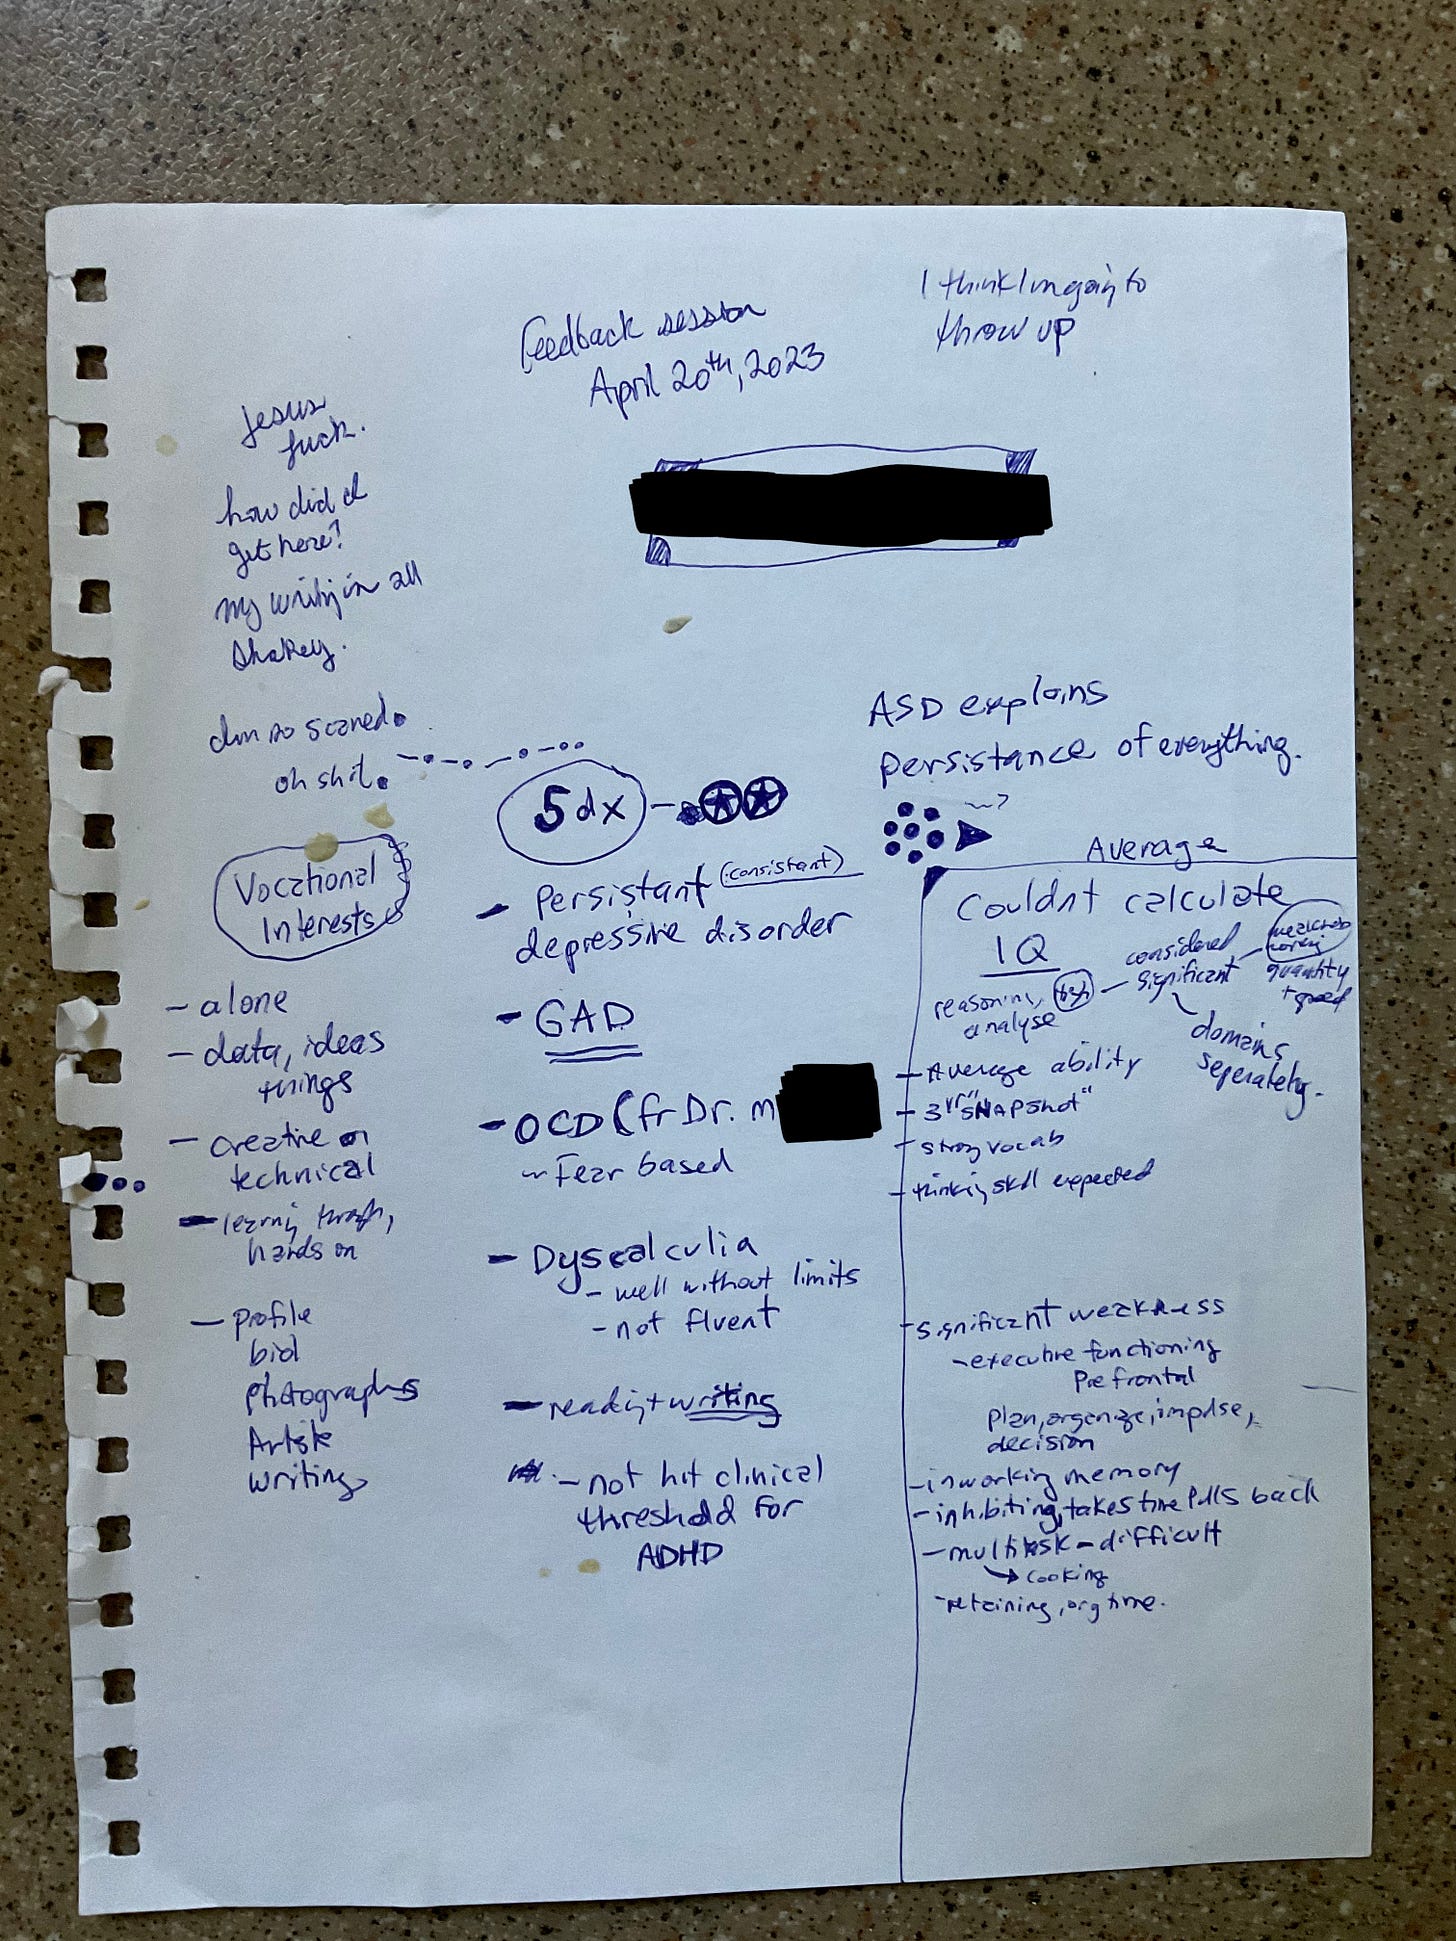 I think Im going to
throw up
feedback session
April 20th, 2023
Jesus
fuck.
how did I
get here?
my writing is all
shakey.
Im so scared.
oh shit.
ASD explains
persistance of everything.
5 dx
Vocational
Interests
- alone
- data, ideas
things
- creative or
technical
- learning through,
hands on
- Profile
bid
photographs
Artistic
writing
- Persistant (consistant)
depressive disorder
- GAD
- OCD (fr Dr. M
~ Fear based
- Dyscalculia
- well without limits
- not fluent
- reading + writing
- not hit clinical
threshold for
ADHD
Average
Couldnt calculate
IQ
reasoning,
analyse
high
considered
significant
quantity
+ speed
domains
seperately.
- Average ability
- 3 yr "SNAPshot"
- strong vocab
- thinking skill expected
- significant weakness
- executive functioning
Prefrontal
plan, organize, impulse,
decision
- in working memory
- inhibiting, takes time Pulls back
- multitask - difficult
cooking
- retaining, org time.